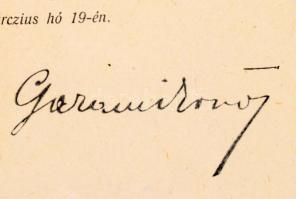 rczius hó 19-én.
Garami Ernő